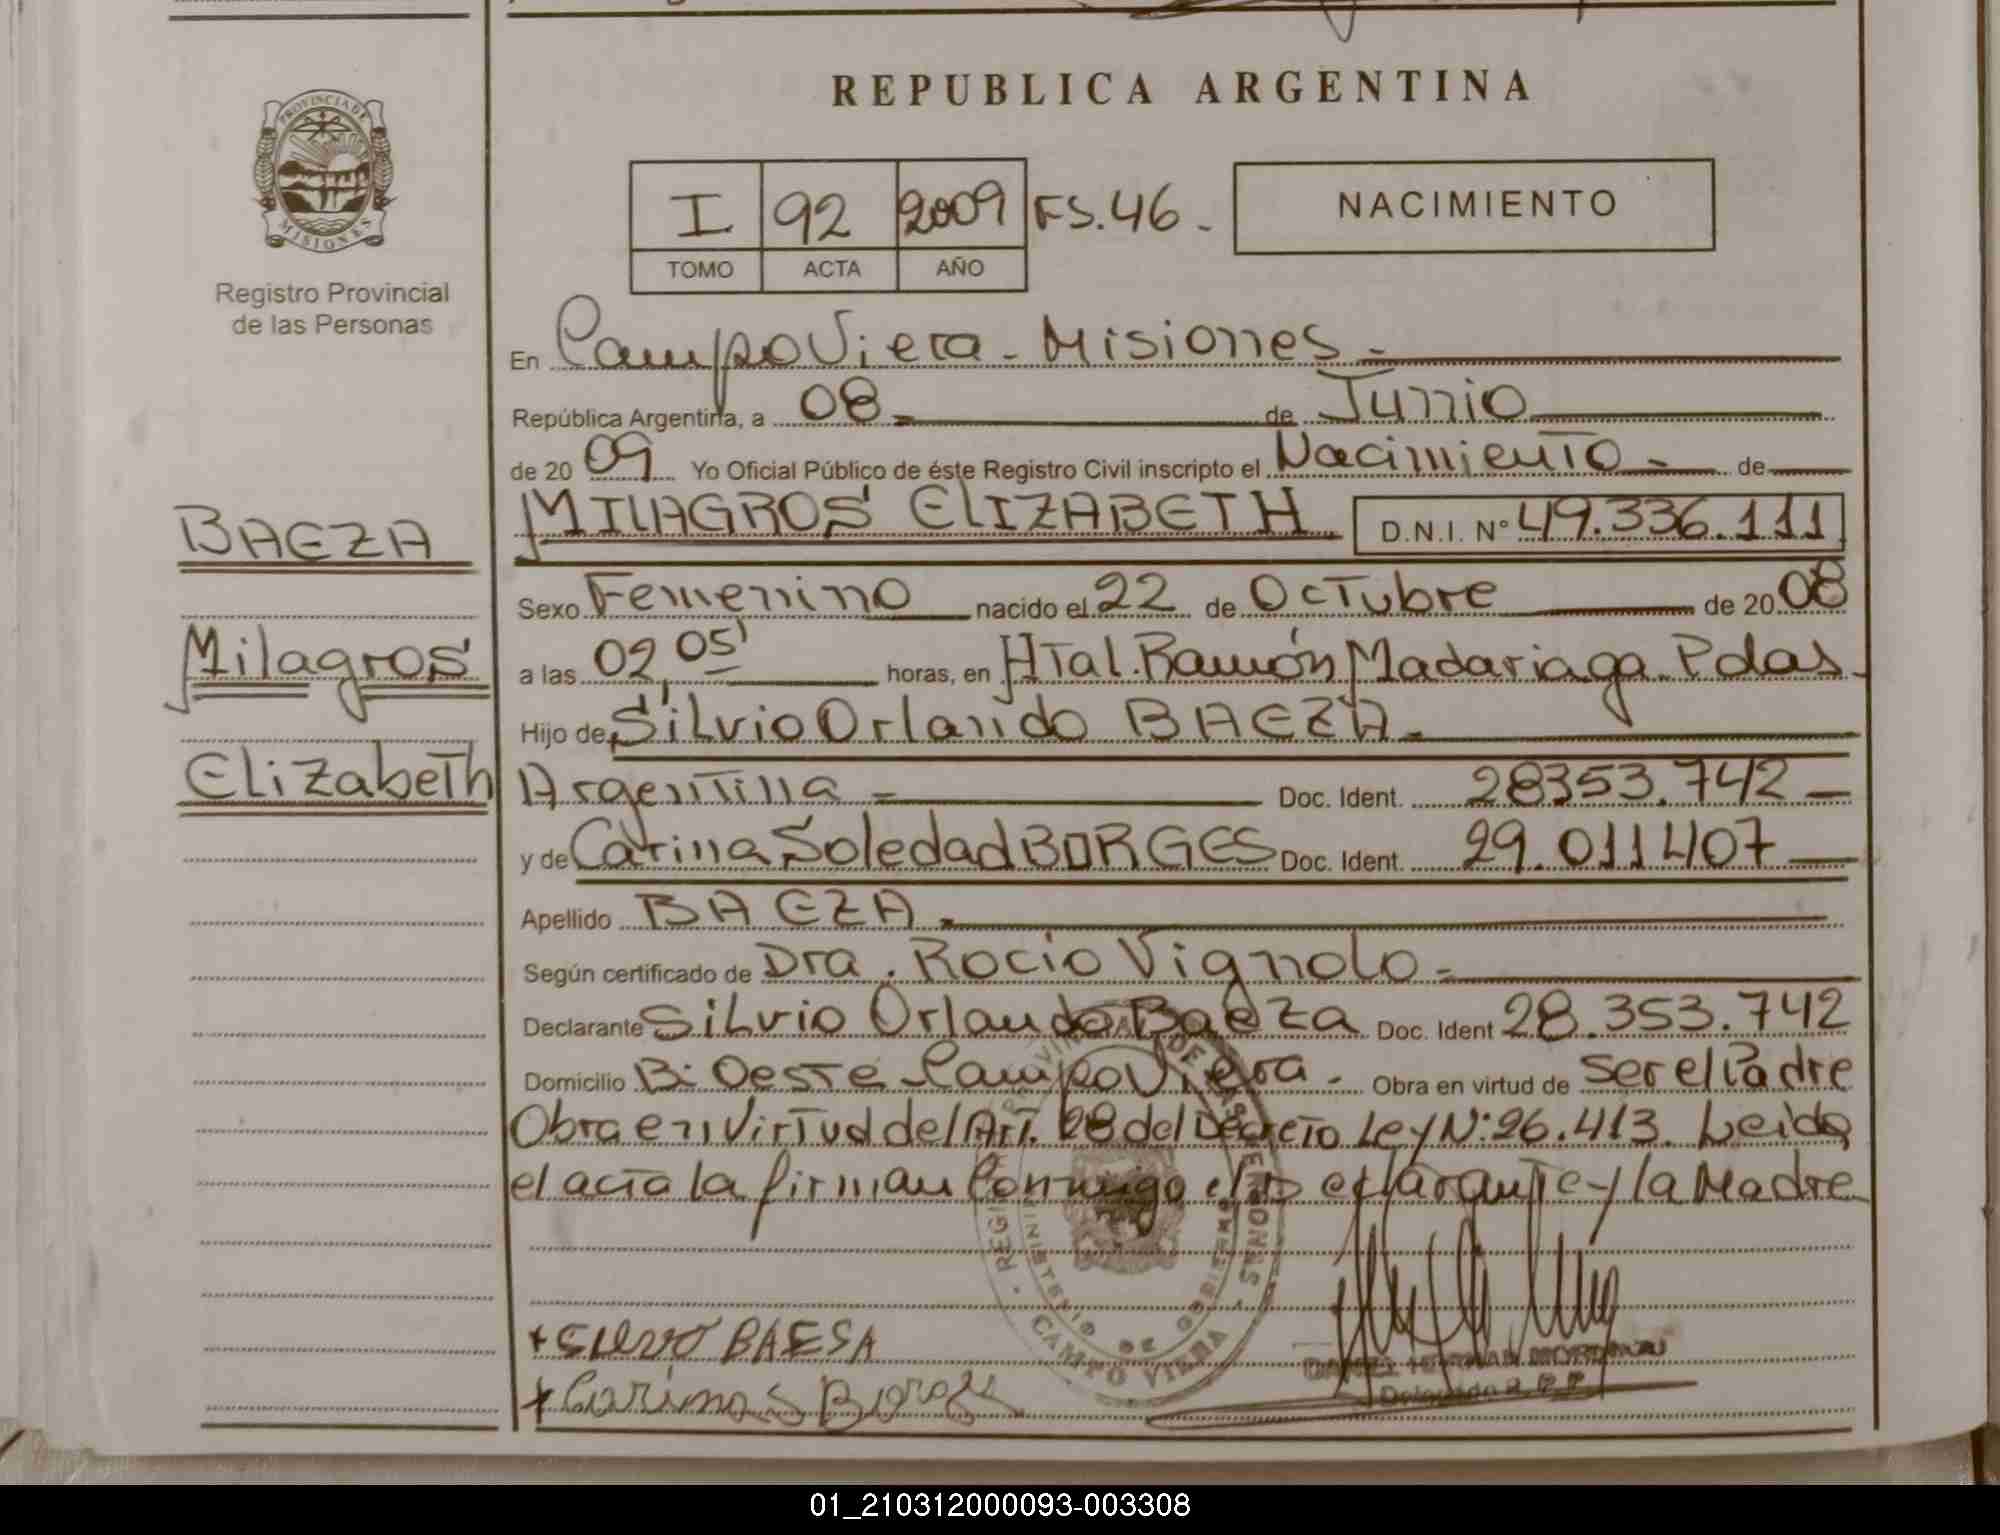 REPUBLICA ARGENTINA
PROVINCIA DE
MISIONES
Registro Provincial
de las Personas
I 92 2009 FS.46.-
TOMO ACTA AÑO
NACIMIENTO
En Campo Viera - Misiones.-
República Argentina, a 08.- de Junio
de 20 09 Yo Oficial Público de éste Registro Civil inscripto el Nacimiento.- de
BAEZA
Milagros
Elizabeth
MILAGROS ELIZABETH D.N.I. Nº 49.336.111
Sexo Femenino nacido el 22 de Octubre de 20 08
a las 02,05' horas, en HTal. Ramón Madariaga. Pdas.-
Hijo de Silvio Orlando BAEZA.-
Argentina - Doc. Ident. 28353.742 -
y de Carina Soledad BORGES Doc. Ident. 29.011407 -
Apellido BAEZA.-
Según certificado de Dra. Rocio Vignolo.-
Declarante Silvio Orlando Baeza Doc. Ident 28.353.742
Domicilio Bº Oeste Campo Viera.- Obra en virtud de ser el Padre
Obra en Virtud del Art. 28 del Decreto Ley Nº:26.413. Leida
el acta la firman Conmigo el Declarante y la Madre
+ SILVIO BAESA
+ Carina S Borges
MINISTERIO DE GOBIERNO
CAMPO VIERA
Delegado R.P.P.
01_210312000093-003308